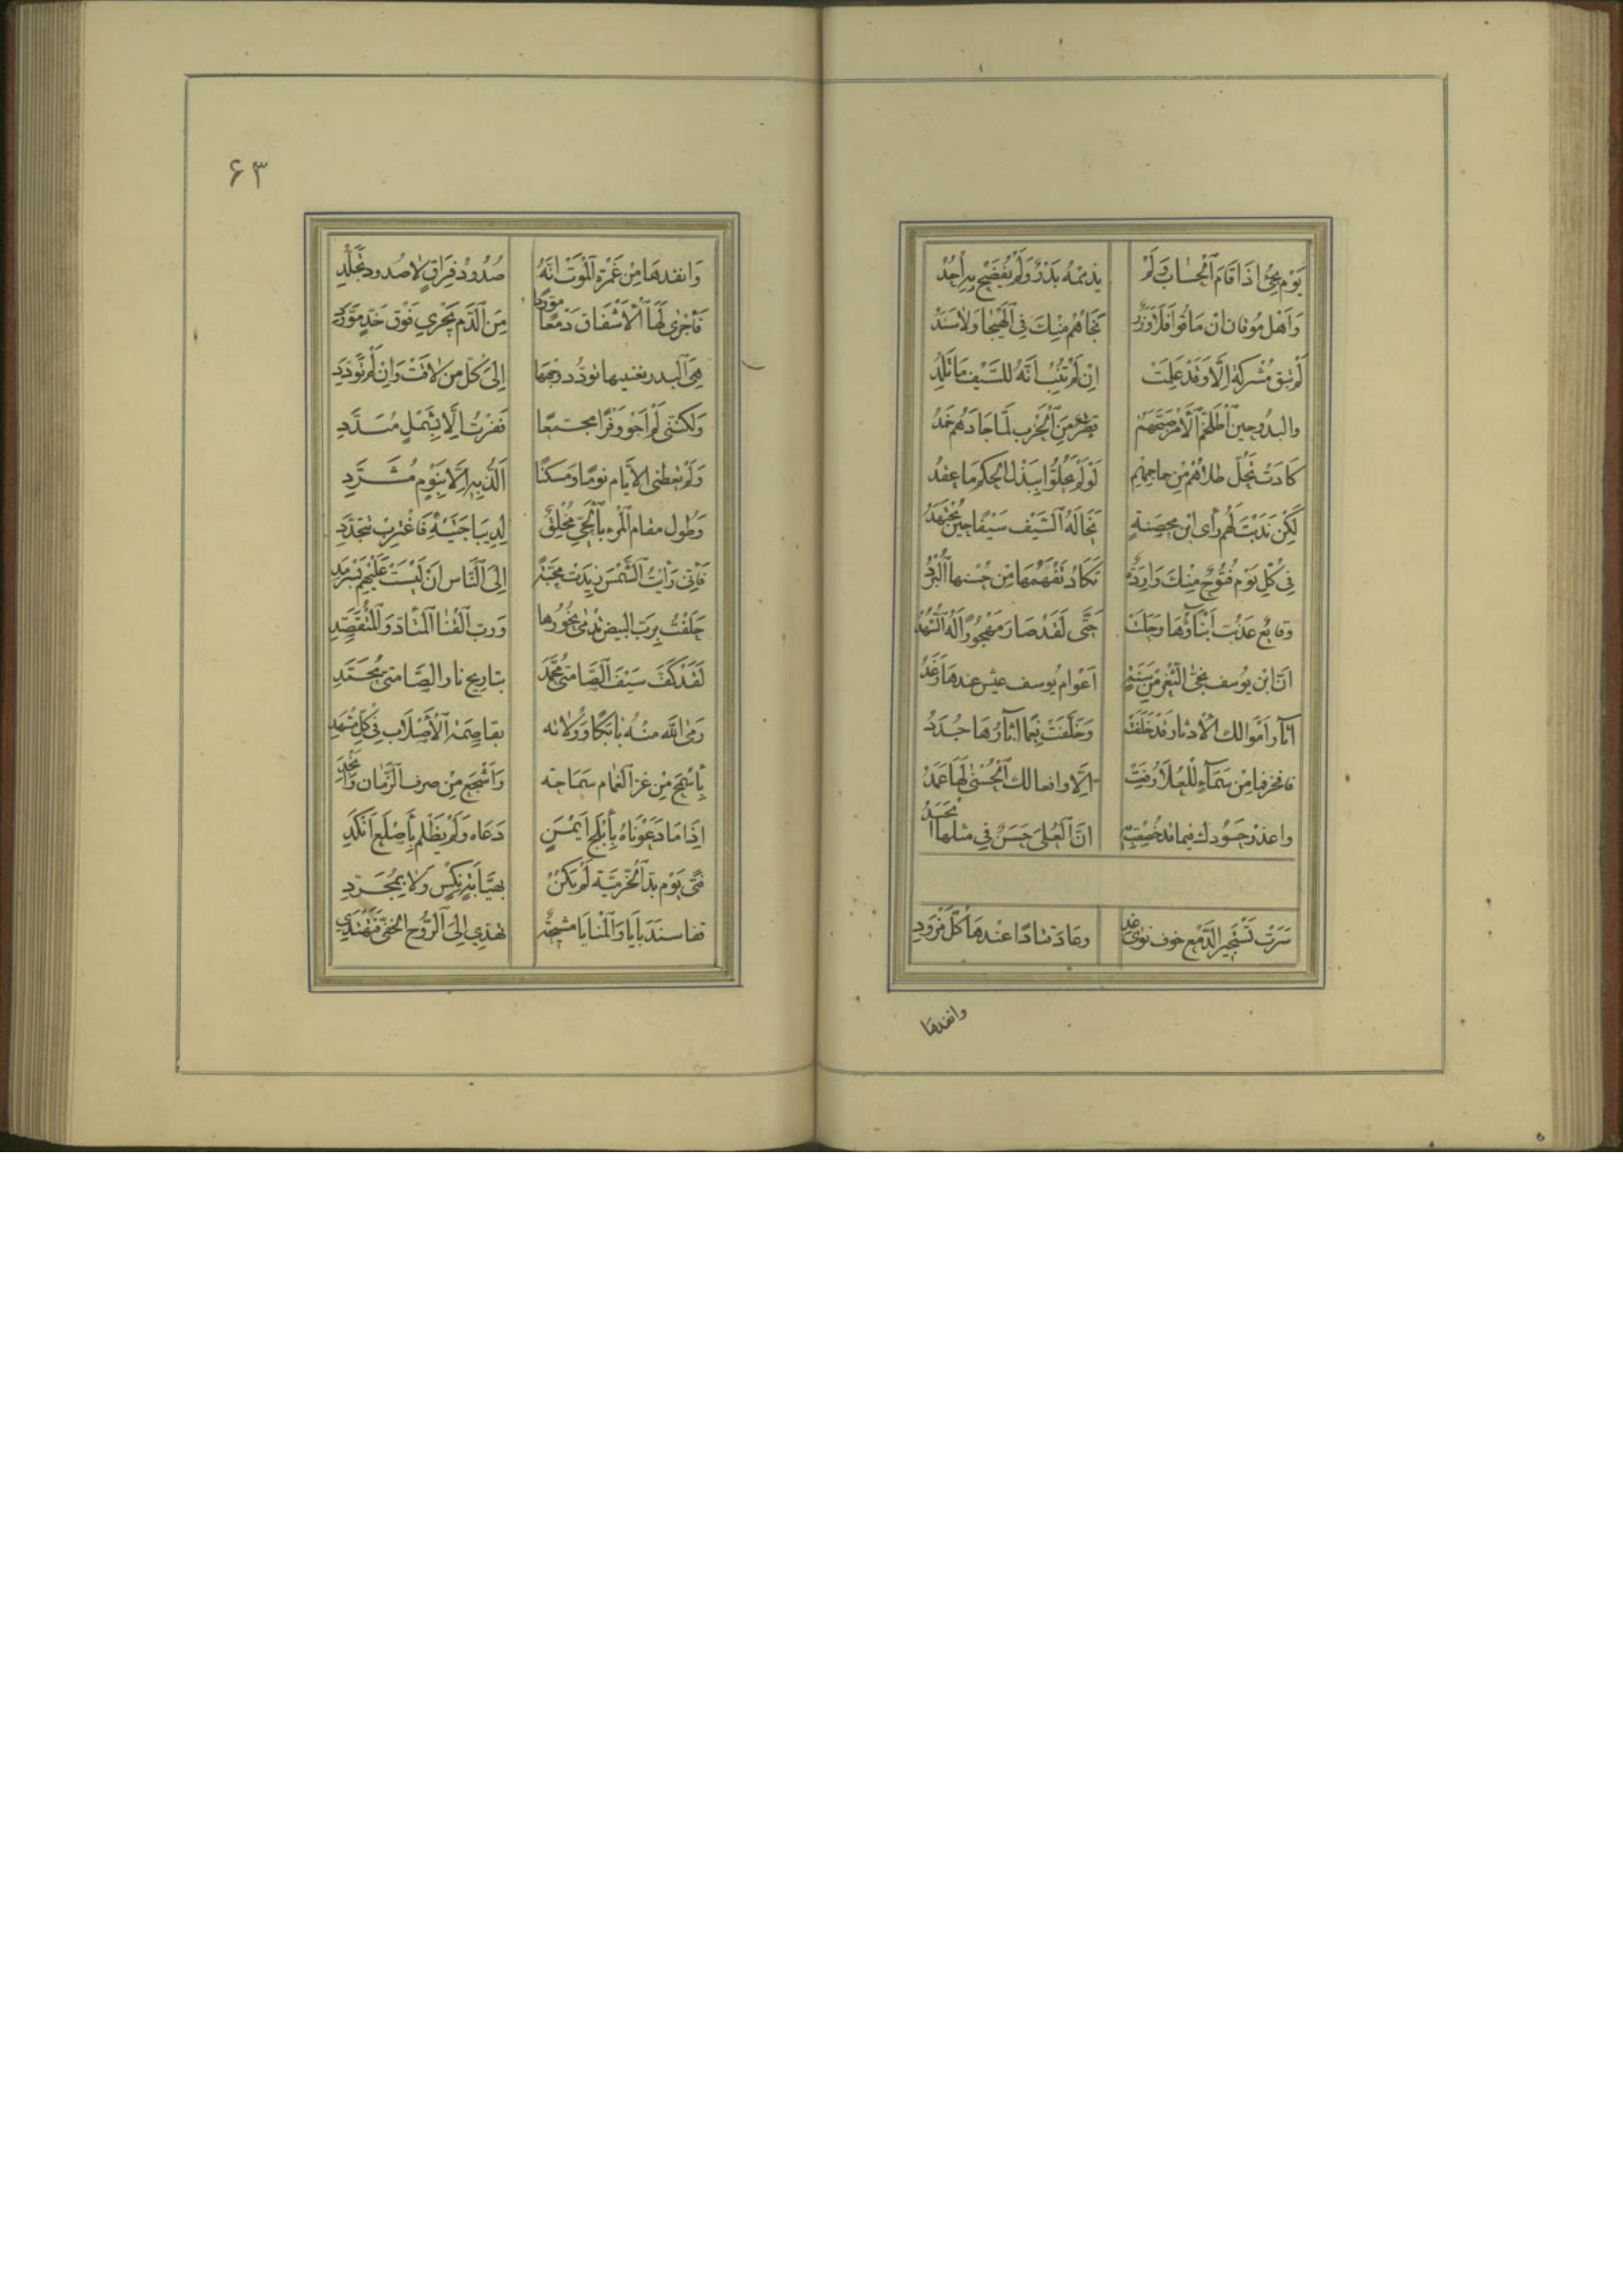 يَوْم يَجِئُ اِذَا قَامَ الْحِسَابُ وَلَمْ يذممْهُ بَدْرٌ وَلَمْ يُفْضَحْ بِهِ أُحُدُ
وَاَهْل مُوقان اِنْ مَاقُوا فَلَا وَزَرٌ نَجَاهُمْ مِنْكَ فِي الْهَيْجَا وَلَا سَنَدُ
لَمْ تبق مُشْرِكَة اِلَّا وَقَدْ عَلِمَتْ اِنْ لَمْ تَتُبْ اَنَّهُ لِلسَّيْف مَا تَلِدُ
والببر حِينَ اطْلَخَمَّ الْاَمْرُ صَبَّحَهُمْ قطرٌ مِنَ الْحَرْب لَمَّا جَادَهُمْ خَمَدُ
كَادَتْ تُحَلّ طلاهُمْ مِنْ جماجمهم لَوْ لَمْ يَحُلُّوا بِبَذْل الحكم مَا عقدُ
لَكِنْ نَدَبْتَ لَهُمْ رَأى ابْن مُحْصَنَةٍ تَخَالُهُ السَّيْف سَيْفًا حِينَ يَجْتَهِدُ
فِي كُلِّ يَوْم فُتُوحٌ مِنْكَ وَارِدَةٌ تَكَادُ تَفْهَمُهَا مِنْ حُسْنِهَا الْبُرُدُ
وقائع عَذُبَت اَنْبَاؤُهَا وَحَلَتْ حَتَّى لَقَدْ صَارَ مَهْجُورًا لَهُ الشُّهُدُ
اِنَّ ابْن يُوسُف نَجَّى الثَّغْر مِنْ سَنَةٍ اَعْوَامُ يُوسُف عَيْش عندهَا رَغَدُ
آثَار اَمْوالك الْادثار قَدْ خَلِقَتْ وَخَلَّفَتْ نِعَمًا اثَارُهَا جُدَدُ
فافخر فما مِنْ سَمَآءٍ لِلْعُلَا رُفِعَتْ اِلَّا وافعالك الْحُسْنَى لَهَا عَمَدُ
واعذر حَسُودك فِيمَا قد خُصِصْتَ بِهِ اِنَّ الْعُلَى حَسَنٌ فِي مثلها الحَسَدُ
سَرَتْ تَسْتَجِير الدَّمْع خوف نوى غَدِ وعَادَ قتادًا عندهَا كُلّ مَرْقَدِ
وانقذها
۶۳
وَانقذهَا مِنْ غَمْرَةِ الْمَوْتِ اَنَّهُ صُدُودُ فِرَاقٍ لَا صُدود تَجَلُّدِ
فَاَجْرَى لَهَا الْاَشْفَاق دَمْعًا مورَّدًا مِنَ الدَّم يَجْرِي فَوْق خَدٍّ مُوَرَّدِ
هِيَ الْبدر يغنيها تودُّد وجهها اِلَى كُلّ مَنْ لَاقَتْ وَاِنْ لَمْ تَوَدَّدِ
وَلكنّنى لَمْ اَحْوِ وَفْرًا مجتمّعًا فَفزتُ اِلَّا بِشَمْلٍ مُبَدَّدِ
وَلَمْ تعطنى الاَيَّام نومًا وَمسكنًا اَلَذُّ بِهِ اِلَّا بِنَوْمٍ مُشَرَّدِ
وَطُول مقام الْمَرء بِالْحَيِّ مُخْلِقٌ لِدِيبَاجَتَيْهِ فَاغْتَرِبْ تتجَدَّدِ
فَاِنِّى رَاَيْتُ الشَّمْسَ زِيدَتْ مَحَبَّةً اِلَى النَّاس اَنْ لَيْسَتْ عَلَيْهِمْ بِسَرْمَدِ
حَلَفْتُ بِرَبّ البيض تَدْمَى نُحُورها وَرَبّ الْقَنَا الْمُنْآد وَالْمُتَقَصِّدِ
لَقَدْ كَفَّ سَيْفَ الصَّامِتِىِّ مُحَمَّد بتاريح نار الصَّامتىّ مُحَمَّدِ
رَمَى الله مِنْهُ بَابَكًا وَوُلَاته بقاصِمَةِ الْاَصْلَاب فِي كُلّ مَشْهَدِ
بِاَسْمَح مِنْ غرّ الْغمام سَمَاحَة وَاَشْجَع مِنْ صرف الزَّمَان وَاَنْجَدِ
اِذَا مَا دَعَوْنَاهُ بِاَبْلَج اَيْمَنٍ دَعَاه وَلَمْ يَظْلم بِاَصْلَع اَنْكَدِ
فَتًى يَوْم بَذّ الْخُرّمِيَّة لَمْ يَكُنْ بِهَيَّابَةٍ نِكْسٍ وَلَا بِمُعَرِّدِ
قفا سَنْدَبَايَا وَالْمَنَايَا مشيحَةٌ تهدي اِلَى الرُّوح الخفيّ فَتَهْتَدِي